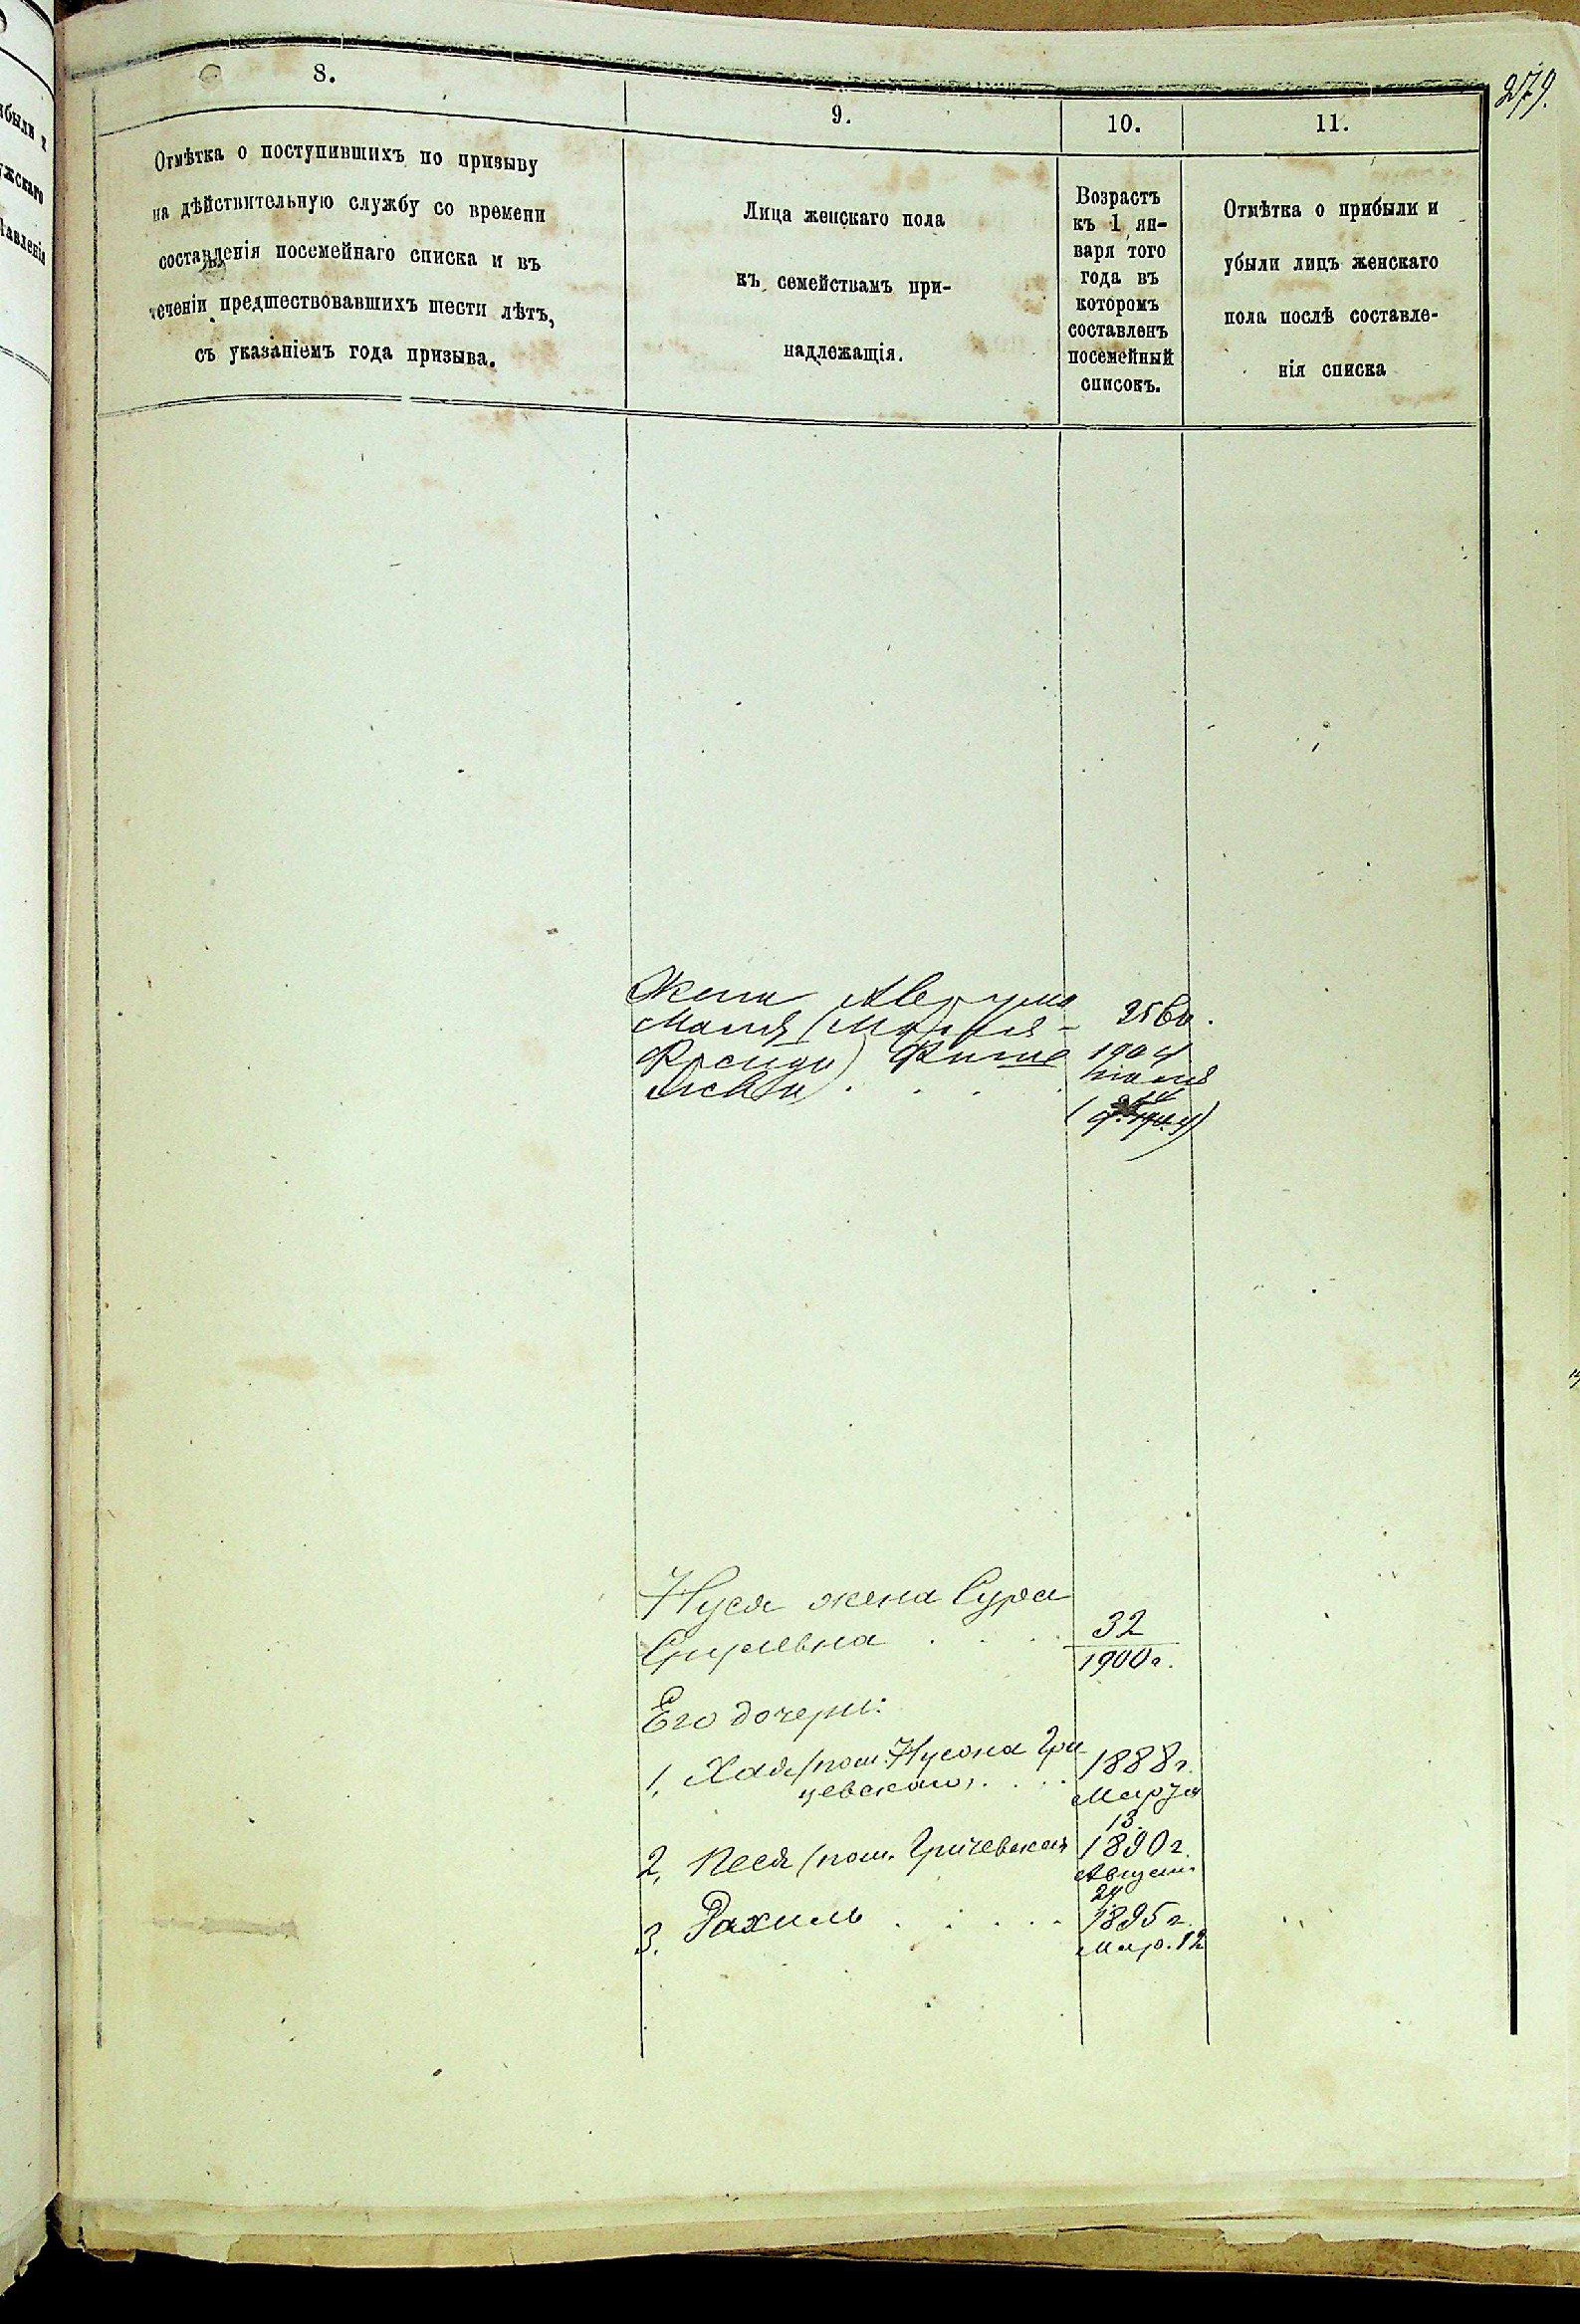 279.
8.
9.
10.
11.
Отмѣтка о поступившихъ по призыву
на дѣйствительную службу со времени
составленія посемейнаго списка и въ
теченіи предшествовавшихъ шести лѣтъ,
съ указаніемъ года призыва.
Лица женскаго пола
къ семействамъ при-
надлежащія.
Возрастъ
къ 1 ян-
варя того
года въ
которомъ
составленъ
посемейный
списокъ.
Отмѣтка о прибыли и
убыли лицъ женскаго
пола послѣ составле-
нія списка
Жена Аврума
1904
Нуся жена Сура
Сруля­евна . . . 32
1900г.
Его дочери:
1, Хая (пош. Нусона Гри
цевскаго) . . . . 1888г.
Марта
13
2, Песя (пош. Гричевская 1890г.
Августа
24
3. Рахиль . . . . . 1895г.
Мар. 12